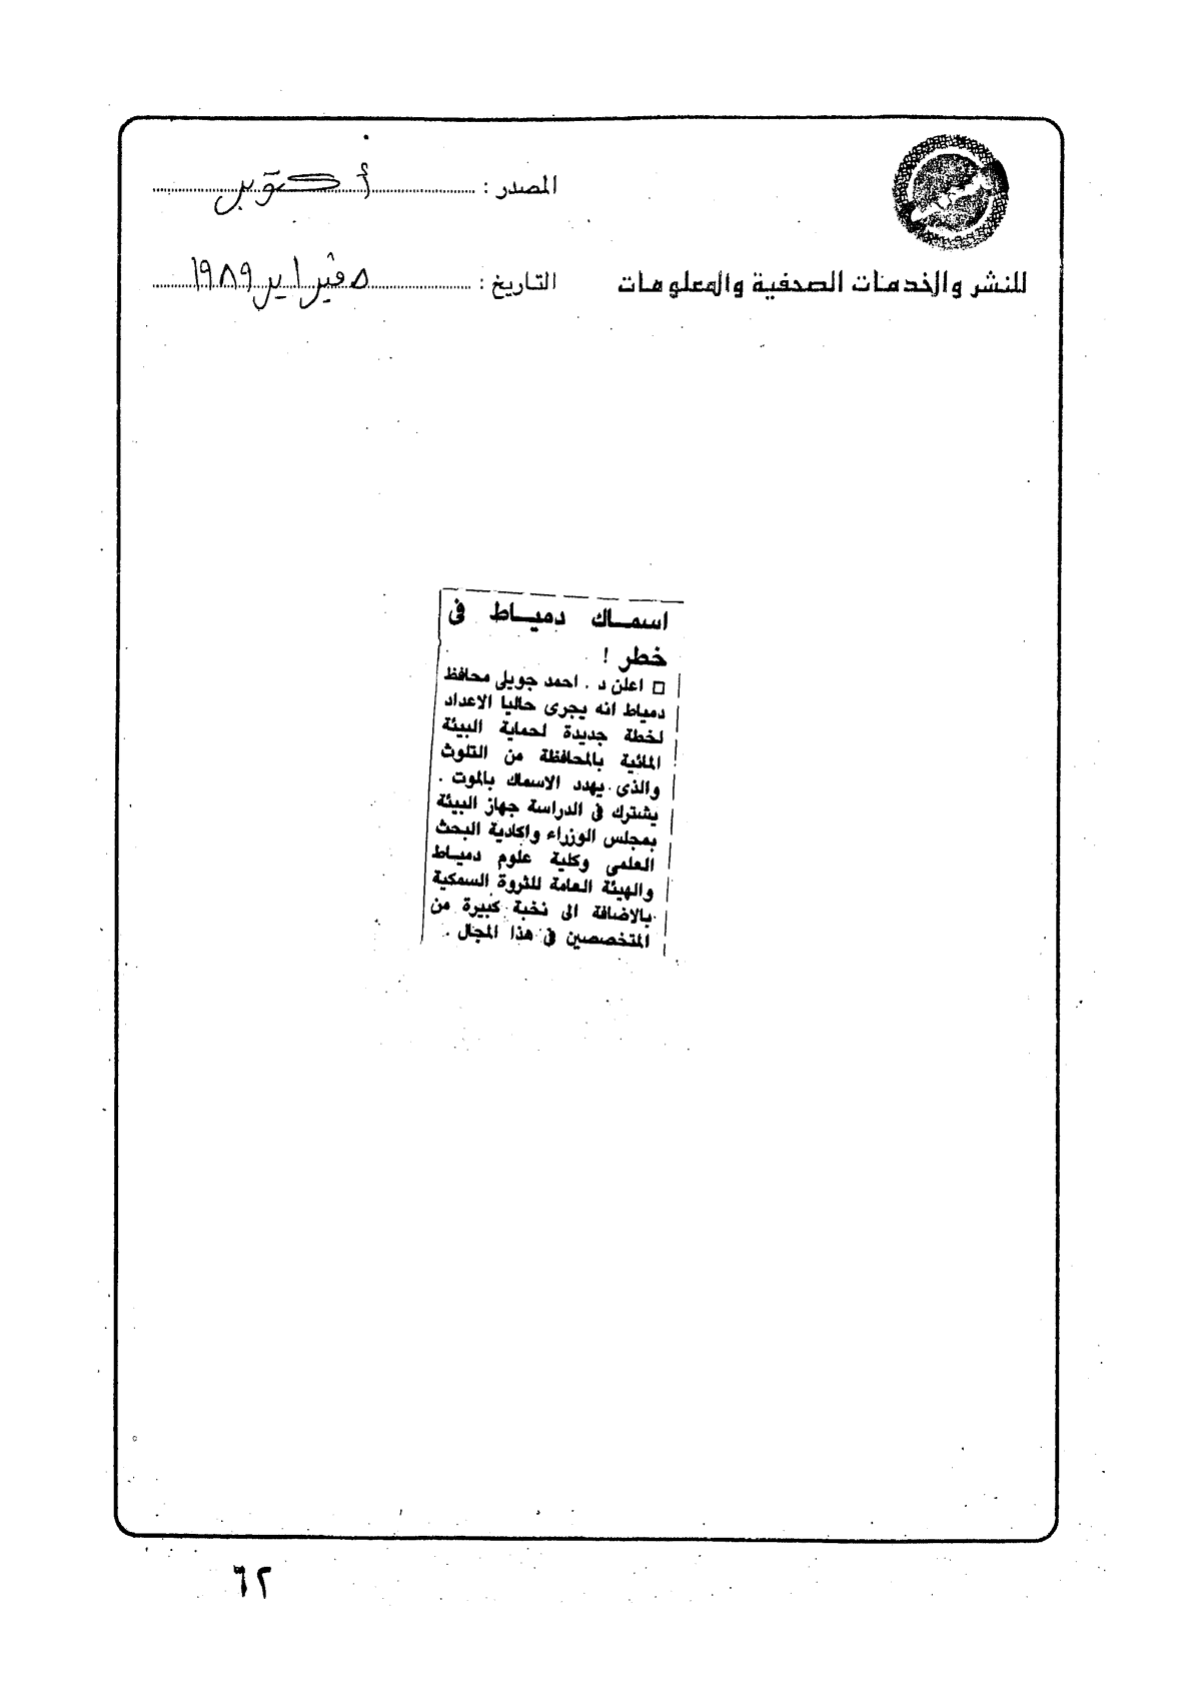 المصدر : أكتوبر
للنشر والخدمات الصحفية والمعلومات
التاريخ : ٥ فبراير ١٩٨٩
اسمـــاك دميـــاط فى
خطر !
□ اعلن د . احمد جويلى محافظ
دمياط انه يجرى حاليا الاعداد
لخطة جديدة لحماية البيئة
المائية بالمحافظة من التلوث
والذى يهدد الاسماك بالموت .
يشترك فى الدراسة جهاز البيئة
بمجلس الوزراء واكادية البحث
العلمى وكلية علوم دميـاط
والهيئة العامة للثروة السمكية
بالاضافة الى نخبة كبيرة من
المتخصصين فى هذا المجال .
٦٢